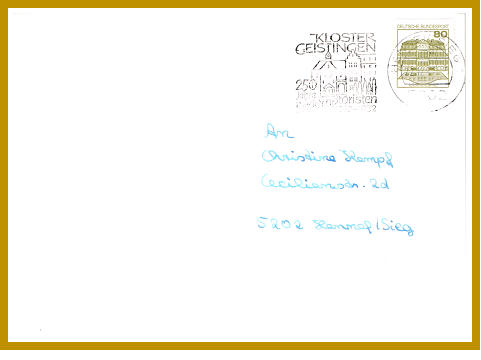 KLOSTER
GEISTINGEN
250
Jahre
Redemptoristen
DEUTSCHE BUNDESPOST
80
An
Christine Kempf
Cecilienstr. 2d
5202 Hennef/Sieg